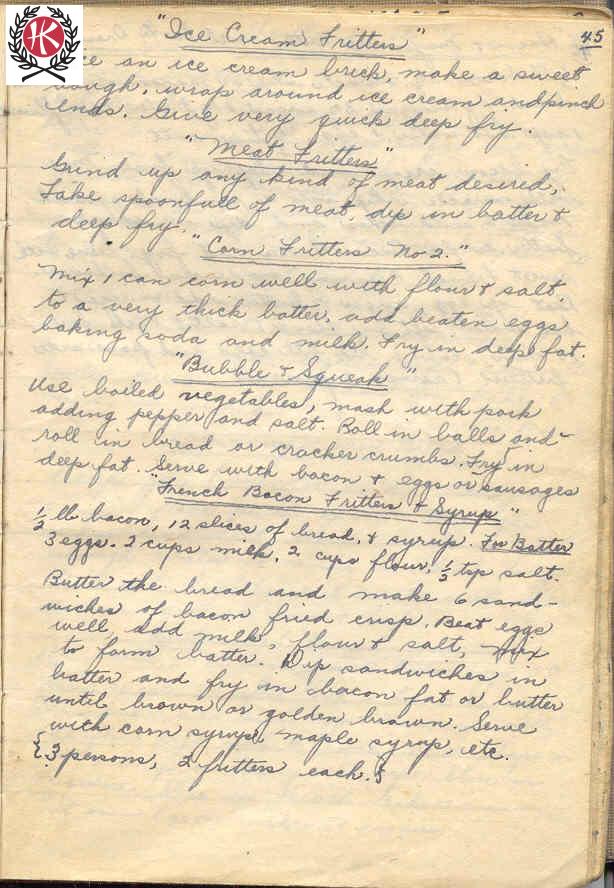 45
HK
"Ice Cream Fritters"
an ice cream brick, make a sweet
dough, wrap around ice cream and pinch
ends. Give very quick deep fry.
"Meat Fritters"
Grind up any kind of meat desired,
Take spoonfull of meat, dip in batter &
deep fry.
"Corn Fritters No 2."
Mix 1 can corn well with flour & salt,
to a very thick batter, add beaten eggs
baking soda and milk. Fry in deep fat.
"Bubble & Squeak"
Use boiled vegetables, mash with pork
adding pepper and salt. Roll in balls and
roll in bread or cracker crumbs. Fry in
deep fat. Serve with bacon & eggs or sausages
"French Bacon Fritters & Syrup"
½ lb bacon, 12 slices of bread, & syrup. For Batter
3 eggs. 2 cups milk, 2 cups flour, ½ tsp salt.
Butter the bread and make 6 sand-
wiches of bacon fried crisp. Beat eggs
well, add milk, flour & salt, mix
to form batter. Dip sandwiches in
batter and fry in bacon fat or butter
until brown or golden brown. Serve
with corn syrup, maple syrup, etc.
{3 persons, 2 fritters each.}